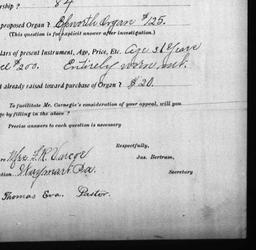 rship ? 84
proposed Organ? Epworth Organ $125.
(This question is for explicit answer after investigation.)
lars of present Instrument, Age, Price, Etc. Age 31 Years
$200. Entirely worn out.
t already raised toward purchase of Organ? $20.
To facilitate Mr. Carnegie's consideration of your appeal, will you
ge by filling in the above ?
Precise answers to each question is necessary
Respectfully,
Jas. Bertram,
Secretary
Mrs. F. R. Vance
tion. Waymart Pa.
Thomas Eva. Pastor.